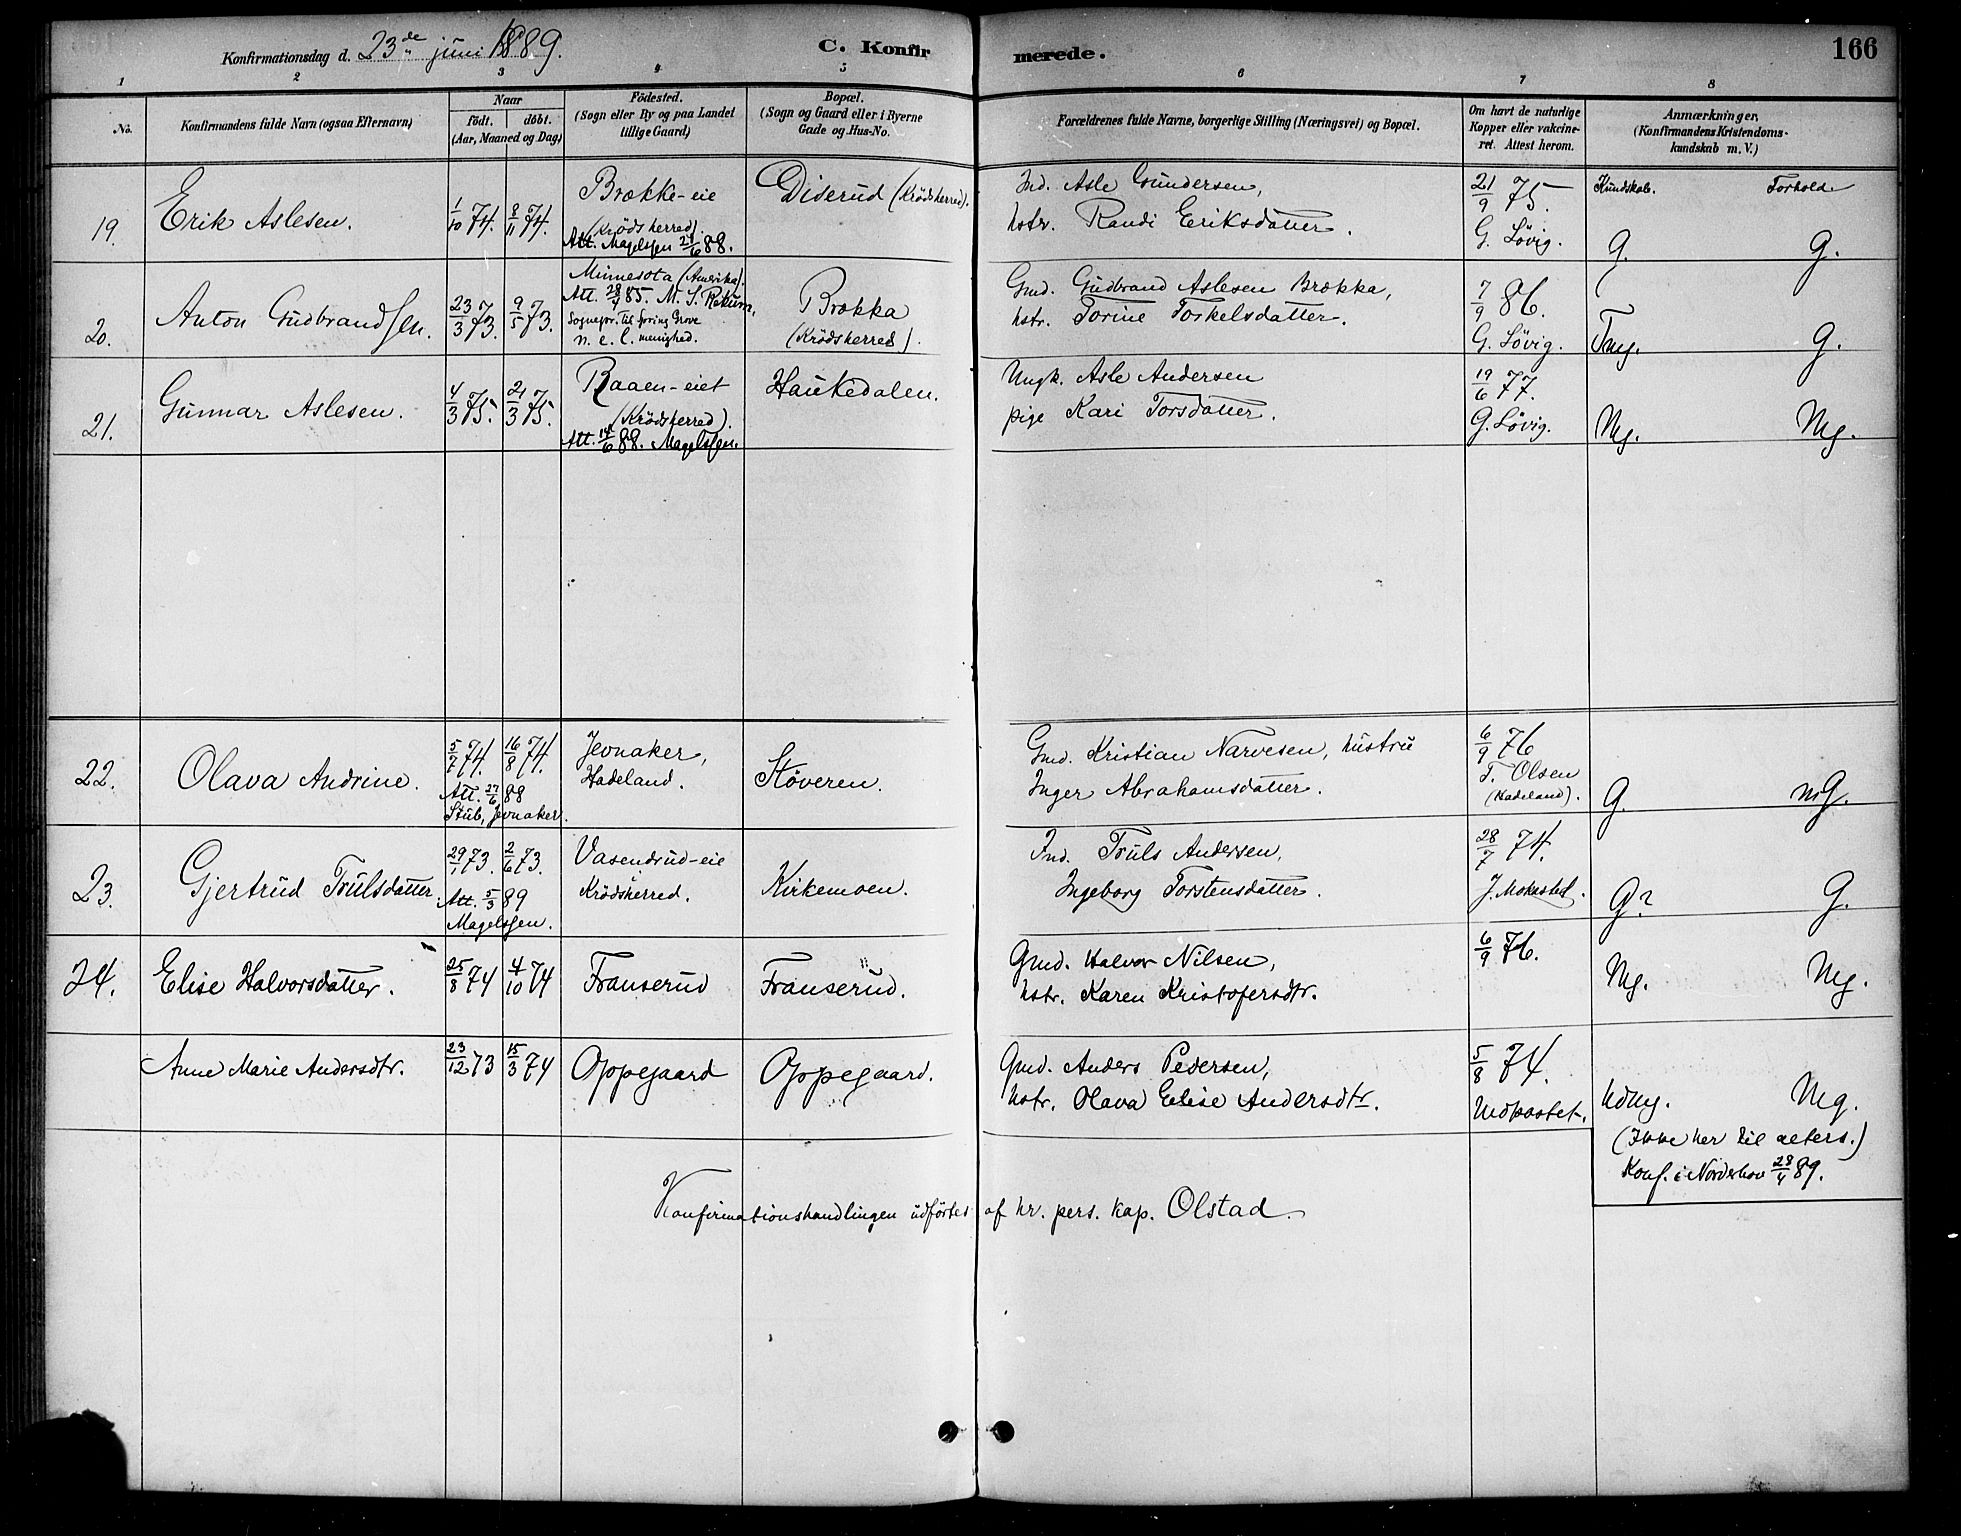 Konfirmationsdag d. 23de juni 1889.
C. Konfirmerede.
166
1 2 3 4 5 6 7 8
No.
Konfirmandens fulde Navn (ogsaa Efternavn)
Naar
födt. döbt.
(Aar, Maaned og Dag)
Födested.
(Sogn eller By og paa Landet
tillige Gaard)
Bopæl.
(Sogn og Gaard eller i Byerne
Gade og Hus-No.
Forældrenes fulde Navne, borgerlige Stilling (Næringsvei) og Bopæl.
Om havt de naturlige
Kopper eller vakcine-
ret. Attest herom.
Anmærkninger,
(Konfirmandens Kristendoms-
kundskab m. V.)
Kundskab. Forhold
19. Erik Aslesen. 1/10 74. 8/11 74.
Brække-eie
(Krödsherred).
Att. Magelssen 24/6 88.
Diserud (Krödsherred).
Ind. Asle Gundersen,
hstr. Randi Eriksdatter.
21/9 75.
G. Lövig.
G. G.
20. Anton Gudbrandsen. 23/3 73. 9/5 73.
Minnesota (Amerika).
Att. 28/4 85. M. S. Rekum,
Sognepr. til Spring Grove
n. e. l. menighed.
Brækka
(Krödsherred).
Gmd. Gudbrand Aslesen Brække,
hstr. Torine Torkelsdatter.
7/9 86.
G. Lövig.
Tmg. G.
21. Gunnar Aslesen. 4/3 75. 21/3 75.
Raaen-eiet
(Krödsherred).
Att. 14/6 88. Magelssen.
Haukedalen.
Ungk. Asle Andersen
pige Kari Torsdatter.
19/6 77.
G. Lövig.
Mg. Mg.
22. Olava Andrine. 5/7 74. 16/8 74.
Att. 27/6 88
Stub, Jevnaker.
Jevnaker,
Hadeland.
Støveren.
Gmd. Kristian Narvesen, hustru
Inger Abrahamsdatter.
6/9 76
T. Olsen
(Hadeland).
G. mG.
23. Gjertrud Trulsdatter. 29/1 73. 2/6 73.
Att. 5/3 89
Magelssen.
Vasendrud-eie
Krödsherred.
Kirkemoen.
Ind. Truls Andersen,
Ingeborg Torstensdatter.
28/7 74.
J. Mokastad.
G? G.
24. Elise Halvorsdatter. 25/8 74 4/10 74
Franserud
Franserud.
Gmd. Halvor Nilsen,
hstr. Karen Kristofersdtr.
6/9 76.
Mg. Mg.
Anne Marie Andersdtr. 23/12 73 15/3 74
Oppegaard
Oppegaard.
Gmd. Anders Pedersen,
hstr. Olava Elise Andersdtr.
5/8 74.
Udmg. Mg.
(Ikke her til alters.)
Konf. i Norderhov 28/4 89.
Konfirmationshandlingen udförtes af hr. pers. kap. Olstad.